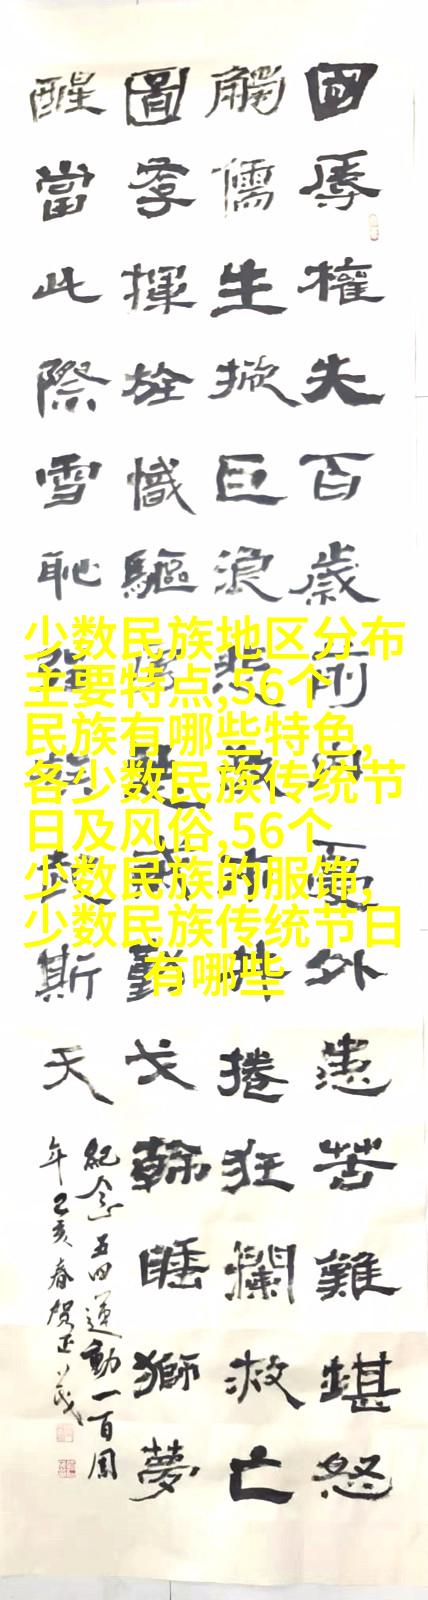 國辱權失百歲前內憂外患苦難堪怒
觸儒生掀巨浪捲狂瀾救亡
圖存揮旌幟驅戈斡睡獅夢
醒當此際雪恥斯天
紀念五四運動一百周
年己亥春賀正
少数民族地区分布
主要特点,56个
民族有哪些特色,
各少数民族传统节
日及风俗,56个
少数民族的服饰,
少数民族传统节日
有哪些